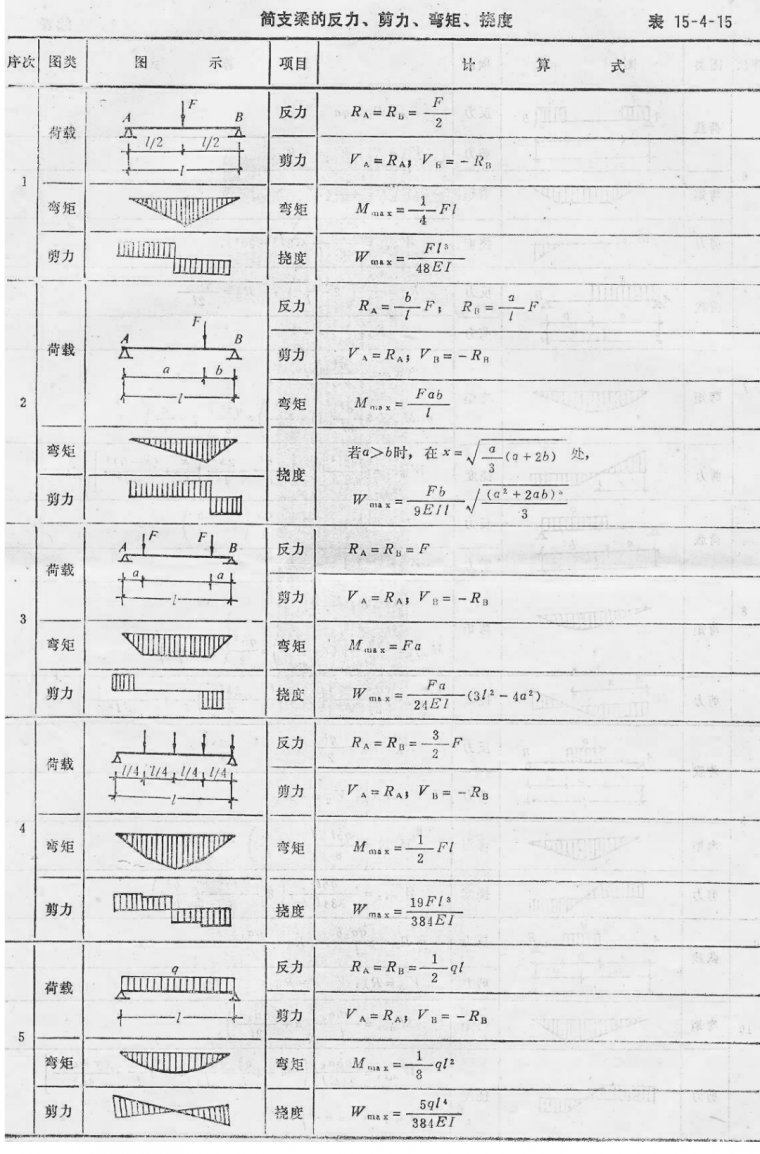 简支梁的反力、剪力、弯矩、挠度 表 15-4-15
序次 图类 图 示 项目 计 算 式
1
荷载 A F B l/2 l/2 l
反力 R_A = R_B = F/2
剪力 V_A = R_A; V_B = -R_B
弯矩 弯矩 M_max = 1/4 Fl
剪力 挠度 W_max = Fl³/48EI
2
荷载 A F B a b l
反力 R_A = b/l F; R_B = a/l F
剪力 V_A = R_A; V_B = -R_B
弯矩 M_max = Fab/l
弯矩
剪力
挠度 若a>b时, 在 x = √(a/3 (a+2b)) 处,
W_max = Fb/9EIl √((a²+2ab)³/3)
3
荷载 A F F B a a l
反力 R_A = R_B = F
剪力 V_A = R_A; V_B = -R_B
弯矩 弯矩 M_max = Fa
剪力 挠度 W_max = Fa/24EI (3l² - 4a²)
4
荷载 l/4 l/4 l/4 l/4 l
反力 R_A = R_B = 3/2 F
剪力 V_A = R_A; V_B = -R_B
弯矩 弯矩 M_max = 1/2 Fl
剪力 挠度 W_max = 19Fl³/384EI
5
荷载 q l
反力 R_A = R_B = 1/2 ql
剪力 V_A = R_A; V_B = -R_B
弯矩 弯矩 M_max = 1/8 ql²
剪力 挠度 W_max = 5ql⁴/384EI